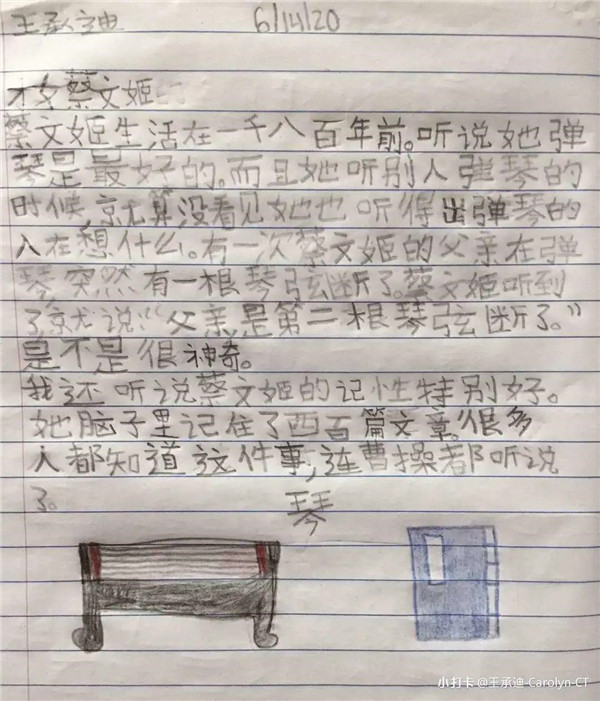 王承迪 6/14/20
才女蔡文姬
蔡文姬生活在一千八百年前。听说她弹
琴是最好的。而且她听别人弹琴的
时候,就算没看见她也听得出弹琴的
人在想什么。有一次蔡文姬的父亲在弹
琴,突然有一根琴弦断了。蔡文姬听到
了,就说:“父亲,是第二根琴弦断了。”
是不是很神奇。
我还听说蔡文姬的记性特别好。
她脑子里记住了四百篇文章。很多
人都知道这件事,连曹操都听说
了。
琴
小打卡 @王承迪-Carolyn-CT